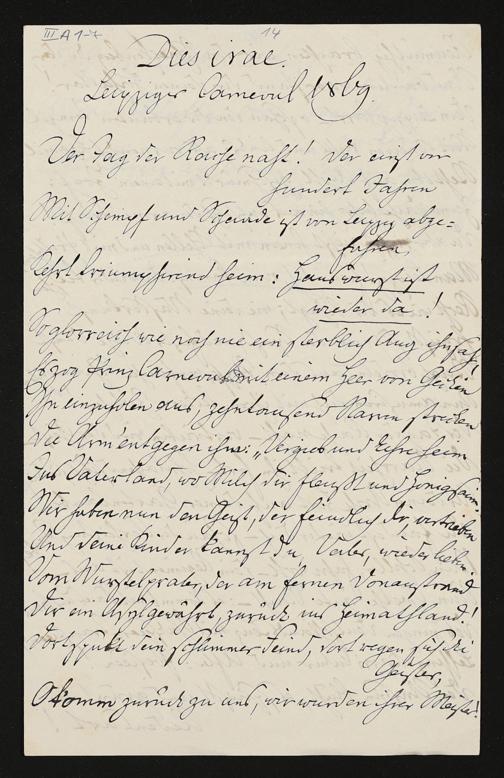 III A 1-7
14
Dies irae.
Leipziger Carneval 1869.
Der Tag der Rache naht! Der einst vor
hundert Jahren
Mit Schimpf und Schande ist von Leipzig abge-
fahren,
Kehrt triumphirend heim: Hanswurst ist
wieder da!
So glorreich wie noch nie ein sterblich Aug ihn sah!
Es zog Prinz Carneval mit einem Heer von Gecken
Ihn einzuholen aus, zehntausend Narren strecken
Die Arm' entgegen ihm: „Vergieb und kehre heim
Ins Vaterland, wo Milch dir fleußt und Honigseim.
Wir haben nun den Geist, der feindlich dir, vertrieben
Und deine Kinder kannst du, Vater, wieder lieben.
Vom Wurstelprater, der am fernen Donaustrand
Dir ein Asyl gewährt, zurück ins Heimathland!
Dort spukt dein schlimmer Feind, dort wegen sich die
Geister,
O komm zurück zu uns, wir wurden ihrer Meister!